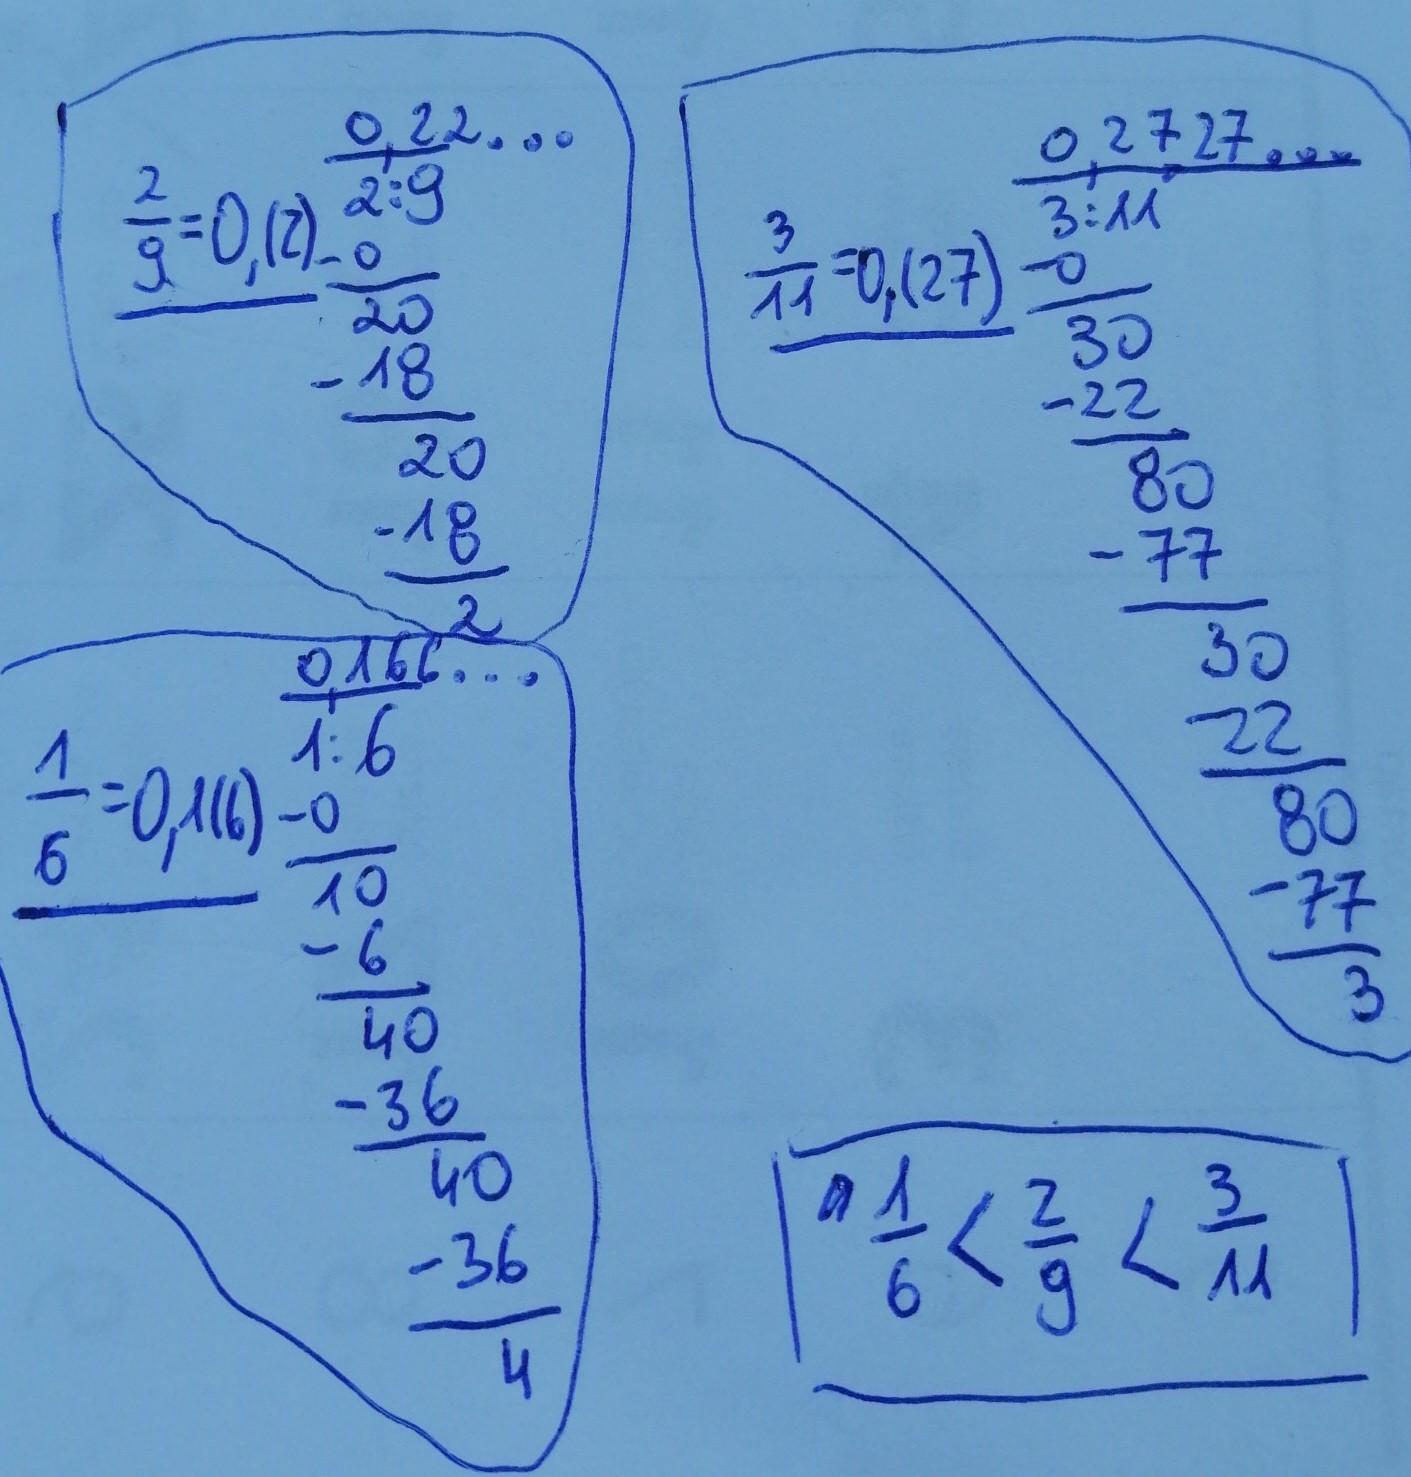 0,22...
2:9
2/9 = 0,(2)
-0
20
-18
20
-18
2
0,2727...
3:11
3/11 = 0,(27)
-0
30
-22
80
-77
30
-22
80
-77
3
0,166...
1:6
1/6 = 0,1(6)
-0
10
-6
40
-36
40
-36
4
1/6 < 2/9 < 3/11